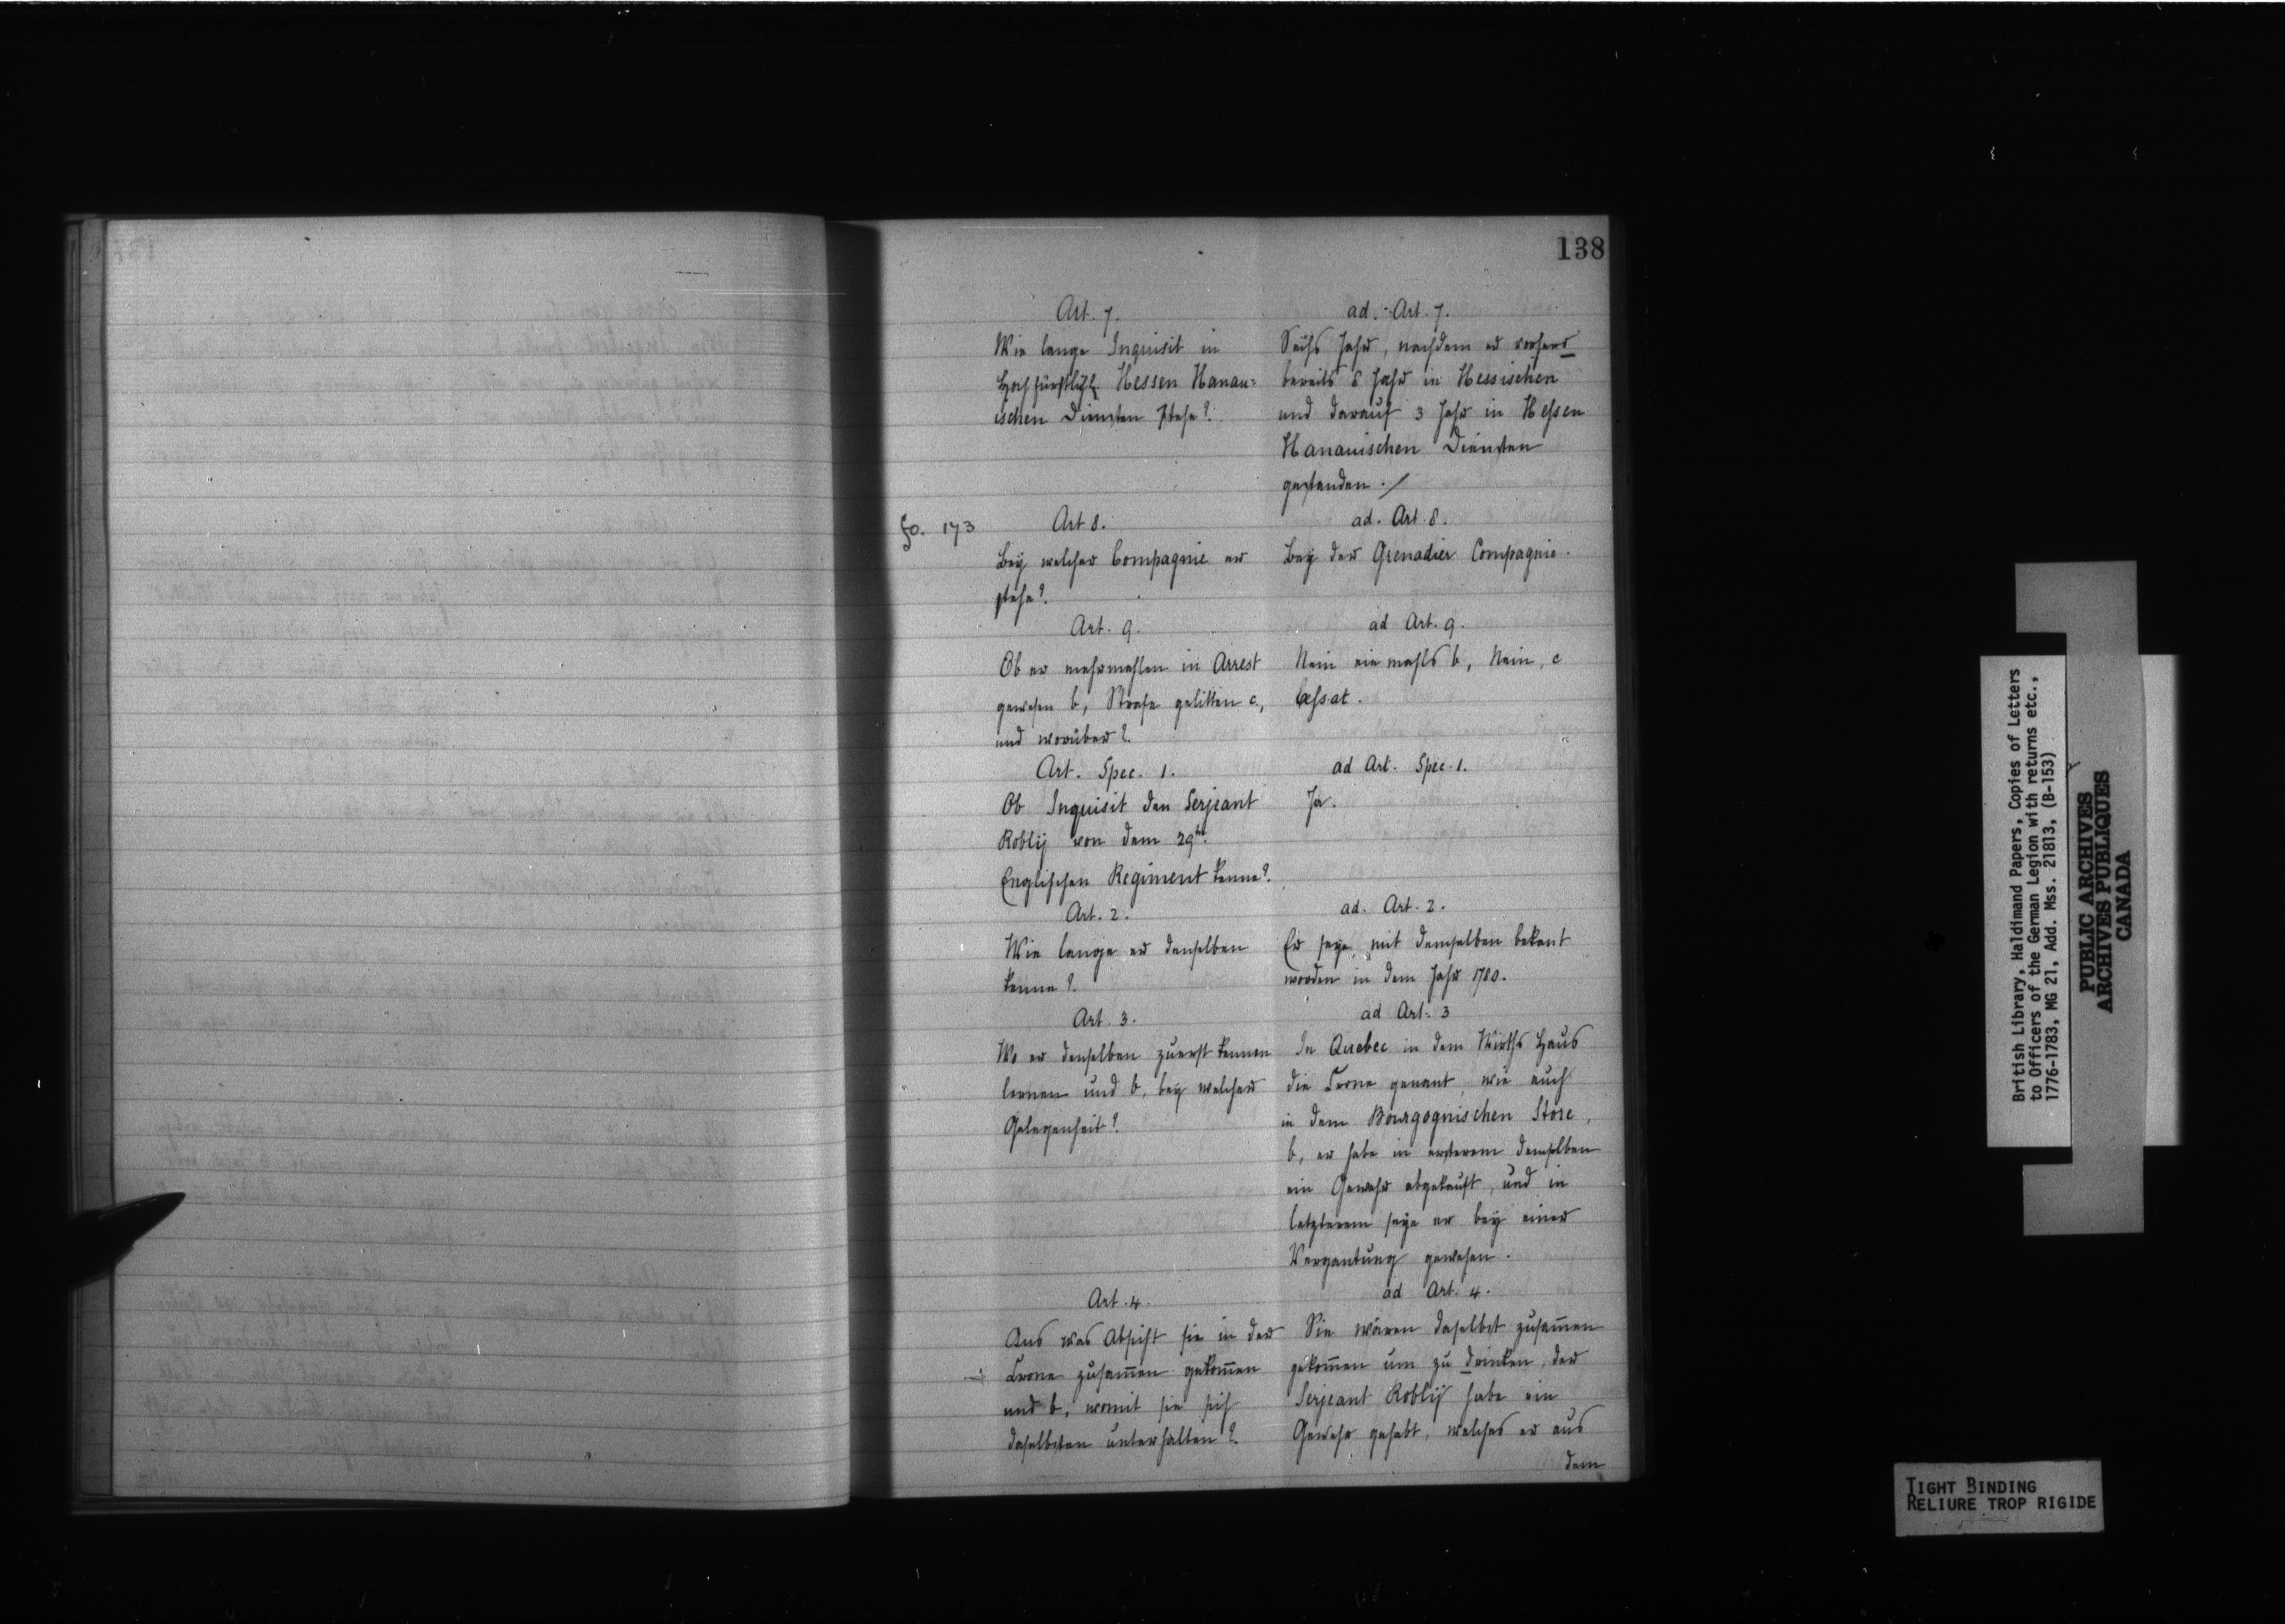 138
Art. 7.
Wie lange Inquisit in
Hochfürstlich Hessen Hanau=
ischen Diensten stehe?
ad. Art. 7.
Sechs Jahr, nachdem er vorhero
bereits 8 Jahr in Hessischen
und darauf 3 Jahr in Hessen
Hanauischen Diensten
gestanden ./
fo. 173
Art 8.
Bey welcher Compagnie er
stehe?
ad. Art. 8.
Bey der Grenadier Compagnie.
Art. 9.
Ob er mehrmahlen in Arrest
gewesen b, Strafe gelitten c.,
und worüber?
ad Art. 9.
Nein einmahls b, Nein, c
Cessat.
Art. Spec. 1.
Ob Inquisit den Serjeant
Roblij von dem 29ten
Englischen Regiment kenne?
ad Art. Spec. 1.
Ja.
Art. 2.
Wie lange er denselben
kenne?
ad. Art. 2.
Er seye mit demselben bekant
worden in dem Jahr 1780.
Art. 3.
Wo er denselben zuerst kennen
lernen und b, bey welcher
Gelegenheit?
ad Art. 3
In Quebec in dem Wirths Haus
die Crone genant, wie auch
in dem Bourgognischen Store,
b, er habe in ersterem demselben
ein Gewehr abgekauft, und in
letzterem seye er bey einer
Vergantung gewesen.
Art. 4.
Aus was Absicht sie in der
Crone zusam̅en gekom̅en
und b, womit sie sich
daselbsten unterhalten?
ad Art. 4.
Sie wären daselbst zusam̅en
gekom̅en um zu drinken, der
Serjeant Roblij habe ein
Gewehr gehabt, welches er aus
dem
British Library, Haldimand Papers, Copies of Letters
to Officers of the German Legion with returns etc.,
1776-1783, MG 21, Add. Mss. 21813, (B-153)
PUBLIC ARCHIVES
ARCHIVES PUBLIQUES
CANADA
TIGHT BINDING
RELIURE TROP RIGIDE